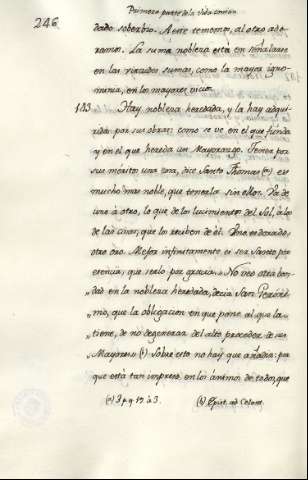 246
Primera parte de la vida comun
dado soberbio. A este tememos, al otro ado-
ramos. La suma nobleza está en señalarse
en las virtudes sumas, como la mayor igno-
minia, en los mayores vicios.
183 Hay nobleza heredada, y la hay adqui-
rida por sus obras: como se ve en el que funda
y en el que hereda un Mayorazgo. Tener por
sus méritos una cosa, dice Santo Thomas (a) es
mucho mas noble, que tenerla sin ellos. Va de
uno á otro, lo que de los lucimientos del Sol, á los
de las cosas, que los reciben de él. Uno es dorado,
otro oro. Mejor infinitamente es ser Santo por
esencia, que serlo por gracia. "No veo otra bon-
"dad en la nobleza heredada, decia San Geróni-
"mo, que la obligacion en que pone al que la
"tiene, de no degenerar del alto proceder de sus
"Mayores" (b) Sobre esto no hay que añadir: por
que está tan impreso, en los ánimos de todos, que
(a) 3 p. q 19 a 3. (b) Epist. ad Celant.